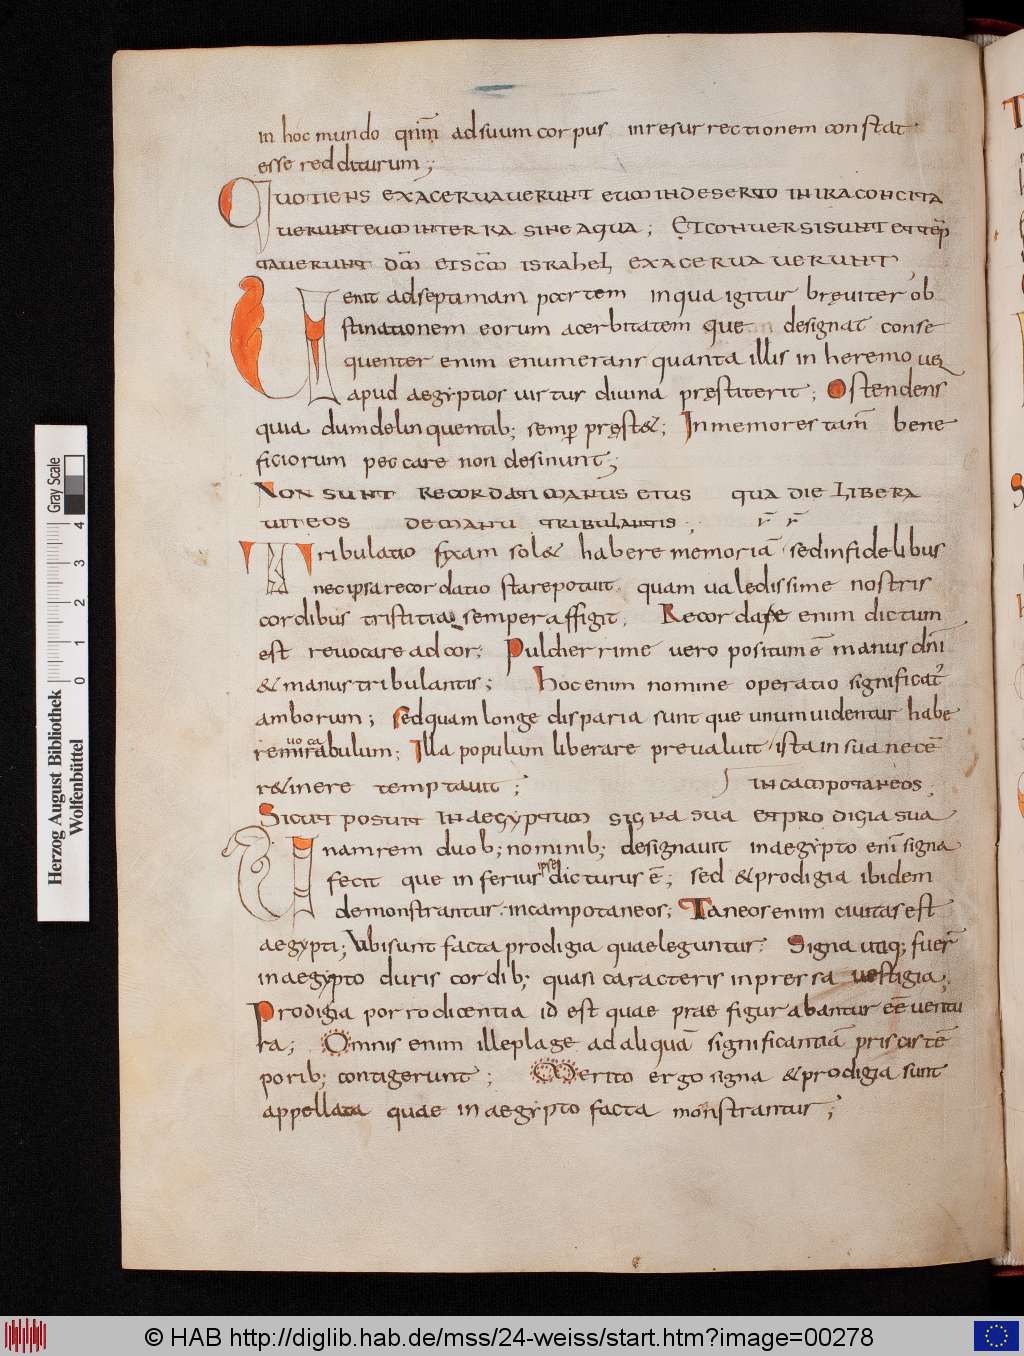 in hoc mundo qnm̄ ad suum corpus in resurrectionem constat
esse redditurum;
QUOTIENS EXACERVAVERUNT EUM IN DESERTO IN IRA CONCITA
VERUNT EUM IN TERRA SINE AQUA; ET CONVERSI SUNT ET TEP̄
TAVERUNT DM̄ ET SCM̄ ISRAHEL EXACERVAVERUNT,
Uenit ad septimam partem in qua igitur breuiter ob
stinationem eorum acerbitatem que designat conse
quenter enim enumerans quanta illis in heremo uel
apud aegyptios uirtus diuina pręstiterit; Ostendens
quia dum delinquentib; semp̄ pręst&; Inmemores tam̄ bene
ficiorum peccare non desinunt;
NON SUNT RECORDATI MANUS EIUS QUA DIE LIBERA
UIT EOS DE MANU TRIBULANTIS; r̄ r̄
Tribulatio fixam sol& habere memoriā sed infidelibus
nec ipsa recordatio stare potuit quam ualedissime nostris
cordibus tristitia semper affigit, Recordare enim dictum
est reuocare ad cor; Pulcherrime uero positum ē manus dn̄i
& manus tribulantis; hoc enim nomine operatio significat᷒
amborum; sed quam longe disparia sunt que unum uidentur habe
re mirabulum; Illa populum liberare preualuit ista in sua necē
uo ca
r&inere temptauit; IN CAMPO TANEOS,
SICUT POSUIT IN AEGYPTUM SIGNA SUA ET PRODIGIA SUA
Unam rem duob; nominib; designauit in aegypto eni᷒ signa
fecit que inferius ipse dicturus ē; sed & prodigia ibidem
demonstrantur. in campo taneos; Taneos enim ciuitas est
aegypti; Ubi sunt facta prodigia quae leguntur. Signa utiq; fuer̄
in aegypto duris cordib; quasi caracteris inpressa uestigia;
Prodigia porro dicentia id est quae praefigurabantur eē uentu
ra; Omnis enim ille plage ad aliquā significantiā priscis tē
porib; contigerunt; Merito ergo signa & prodigia sunt
appellata quae in aegypto facta monstrantur;
Herzog August Bibliothek
Wolfenbüttel
Gray Scale
0 1 2 3 4
© HAB http://diglib.hab.de/mss/24-weiss/start.htm?image=00278